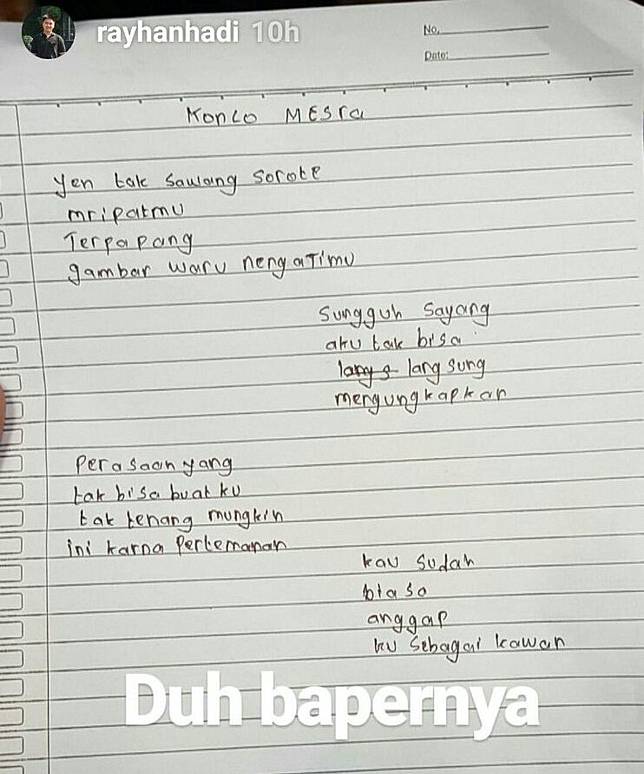 rayhanhadi 10h
No.
Date:
Konco MESra
Yen tak Sawang Sorote
mripatmu
Terpapang
gambar waru nengaTimu
Sungguh Sayang
aku tak bisa
langsung
mengungkapkan
Perasaan yang
tak bisa buat ku
tak tenang mungkin
ini karna Pertemanan
kau Sudah
biaso
anggap
ku Sebagai kawan
Duh bapernya